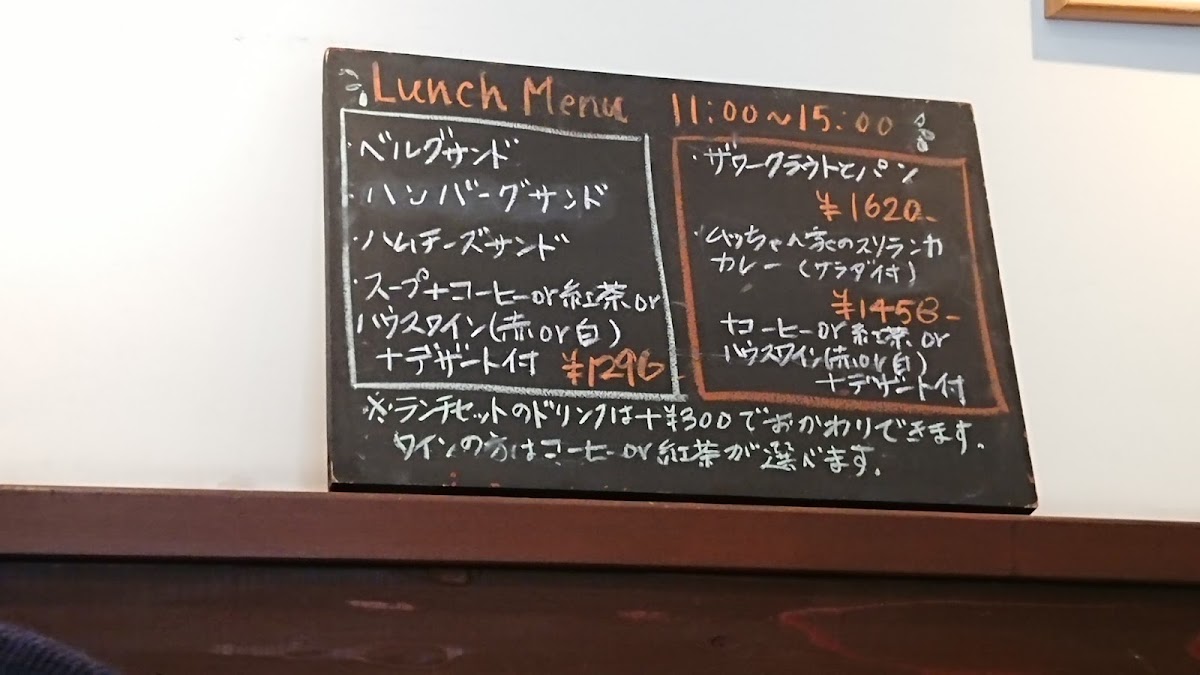 Lunch Menu 11:00~15:00
・ベルグサンド
・ハンバーグサンド
・ハムチーズサンド
・スープ+コーヒーor紅茶or
ハウスワイン(赤or白)
+デザート付 ¥1296
・ザワークラウトとパン
¥1620-
・ムッちゃん家のスリランカ
カレー(サラダ付)
¥1458-
+コーヒーor紅茶or
ハウスワイン(赤or白)
+デザート付
※ランチセットのドリンクは+¥300でおかわりできます。
ワインの方はコーヒーor紅茶が選べます。